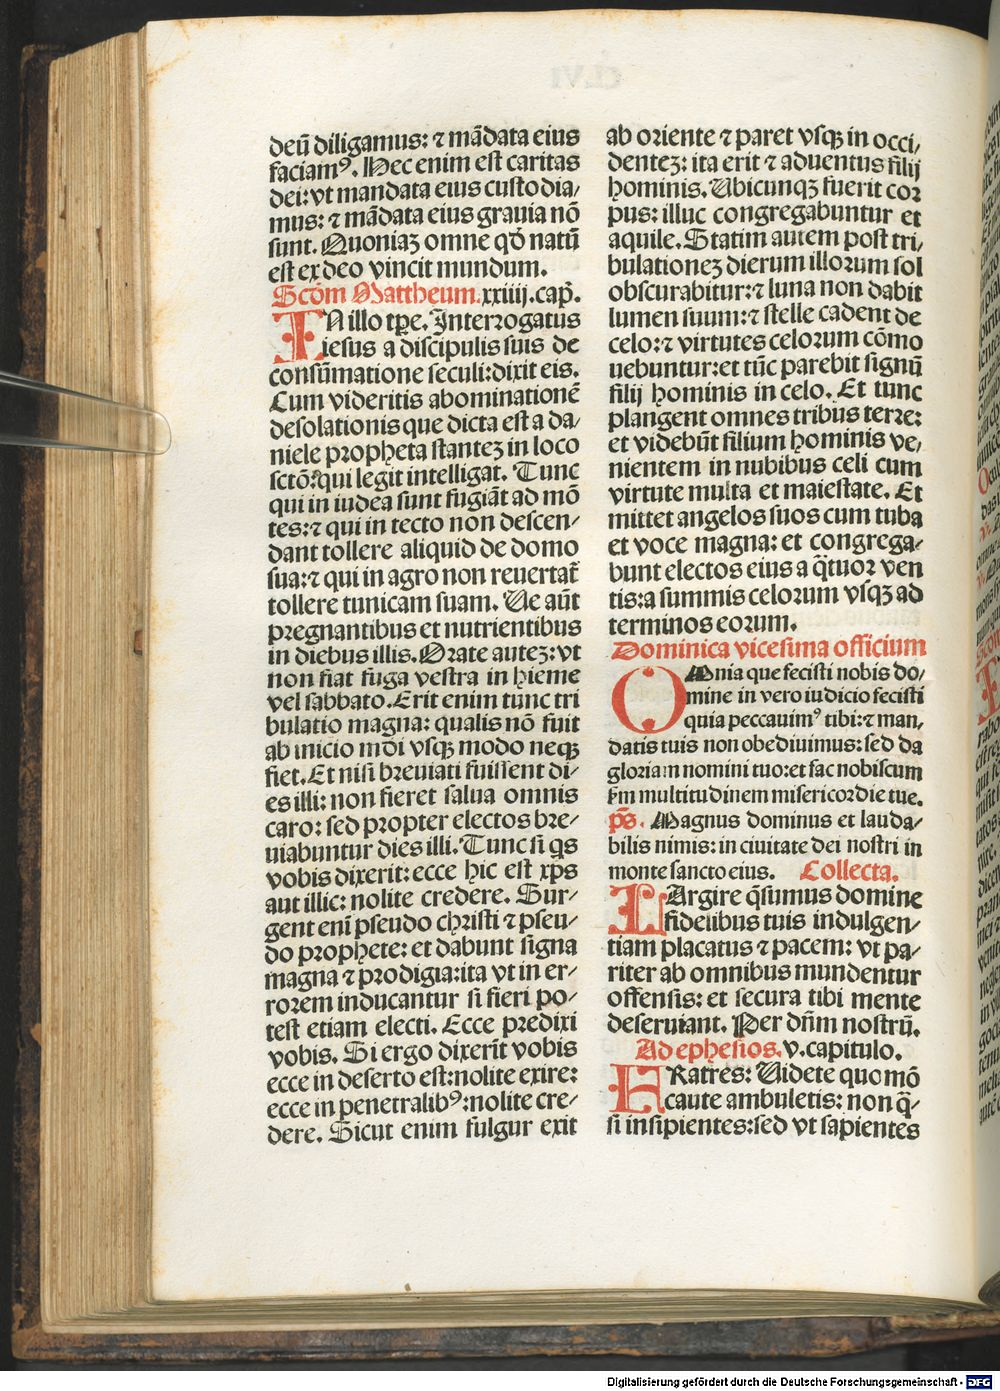 deū diligamus: ⁊ mādata eius
faciamꝰ. Hec enim est caritas
dei: vt mandata eius custodia/
mus: ⁊ mādata eius grauia nō
sunt. Quoniaꝫ omne qd̄ natū
est ex deo vincit mundum.
Scd̄m Mattheum. xxiiij. cap̄.
IN illo tp̄e. Interrogatus
iesus a discipulis suis de
consūmatione seculi: dixit eis.
Cum videritis abominationē
desolationis que dicta est a da/
niele propheta stanteꝫ in loco
sctō: qui legit intelligat. Tunc
qui in iudea sunt fugiāt ad mō
tes: ⁊ qui in tecto non descen/
dant tollere aliquid de domo
sua: ⁊ qui in agro non reuertat̄
tollere tunicam suam. Ve aūt
pregnantibus et nutrientibus
in diebus illis. Orate auteꝫ: vt
non fiat fuga vestra in hieme
vel sabbato. Erit enim tunc tri
bulatio magna: qualis nō fuit
ab inicio mōi vsqꝫ modo neqꝫ
fiet. Et nisi breuiati fuissent di/
es illi: non fieret salua omnis
caro: sed propter electos bre/
uiabuntur dies illi. Tunc si q̄s
vobis dixerit: ecce hic est xp̄s
aut illic: nolite credere. Sur/
gent eni̅ pseudo christi ⁊ pseu/
do prophete: et dabunt signa
magna ⁊ prodigia: ita vt in er/
rorem inducantur si fieri po/
test etiam electi. Ecce predixi
vobis. Si ergo dixerīt vobis
ecce in deserto est: nolite exire:
ecce in penetralibꝰ: nolite cre/
dere. Sicut enim fulgur exit
ab oriente ⁊ paret vsqꝫ in occi/
denteꝫ: ita erit ⁊ aduentus filij
hominis. Vbicunqꝫ fuerit cor
pus: illuc congregabuntur et
aquile. Statim autem post tri/
bulationeꝫ dierum illorum sol
obscurabitur: ⁊ luna non dabit
lumen suum: ⁊ stelle cadent de
celo: ⁊ virtutes celorum cōmo
uebuntur: et tūc parebit signū
filij hominis in celo. Et tunc
plangent omnes tribus terre:
et videbūt filium hominis ve/
nientem in nubibus celi cum
virtute multa et maiestate. Et
mittet angelos suos cum tuba
et voce magna: et congrega/
bunt electos eius a q̄tuor ven
tis: a summis celorum vsqꝫ ad
terminos eorum.
Dominica vicesima officium
OMnia que fecisti nobis do/
mine in vero iudicio fecisti
quia peccauimꝰ tibi: ⁊ man/
datis tuis non obediuimus: sed da
gloriam nomini tuo: et fac nobiscum
s̄m multitudinem misericordie tue.
ps̄. Magnus dominus et lauda/
bilis nimis: in ciuitate dei nostri in
monte sancto eius. Collecta.
LArgire q̄sumus domine
fidelibus tuis indulgen/
tiam placatus ⁊ pacem: vt pa/
riter ab omnibus mundentur
offensis: et secura tibi mente
deseruiant. Per dn̄m nostrū.
Ad ephesios. v. capitulo.
FRatres: Videte quomō
caute ambuletis: non q̄/
si insipientes: sed vt sapientes
Digitalisierung gefördert durch die Deutsche Forschungsgemeinschaft - DFG